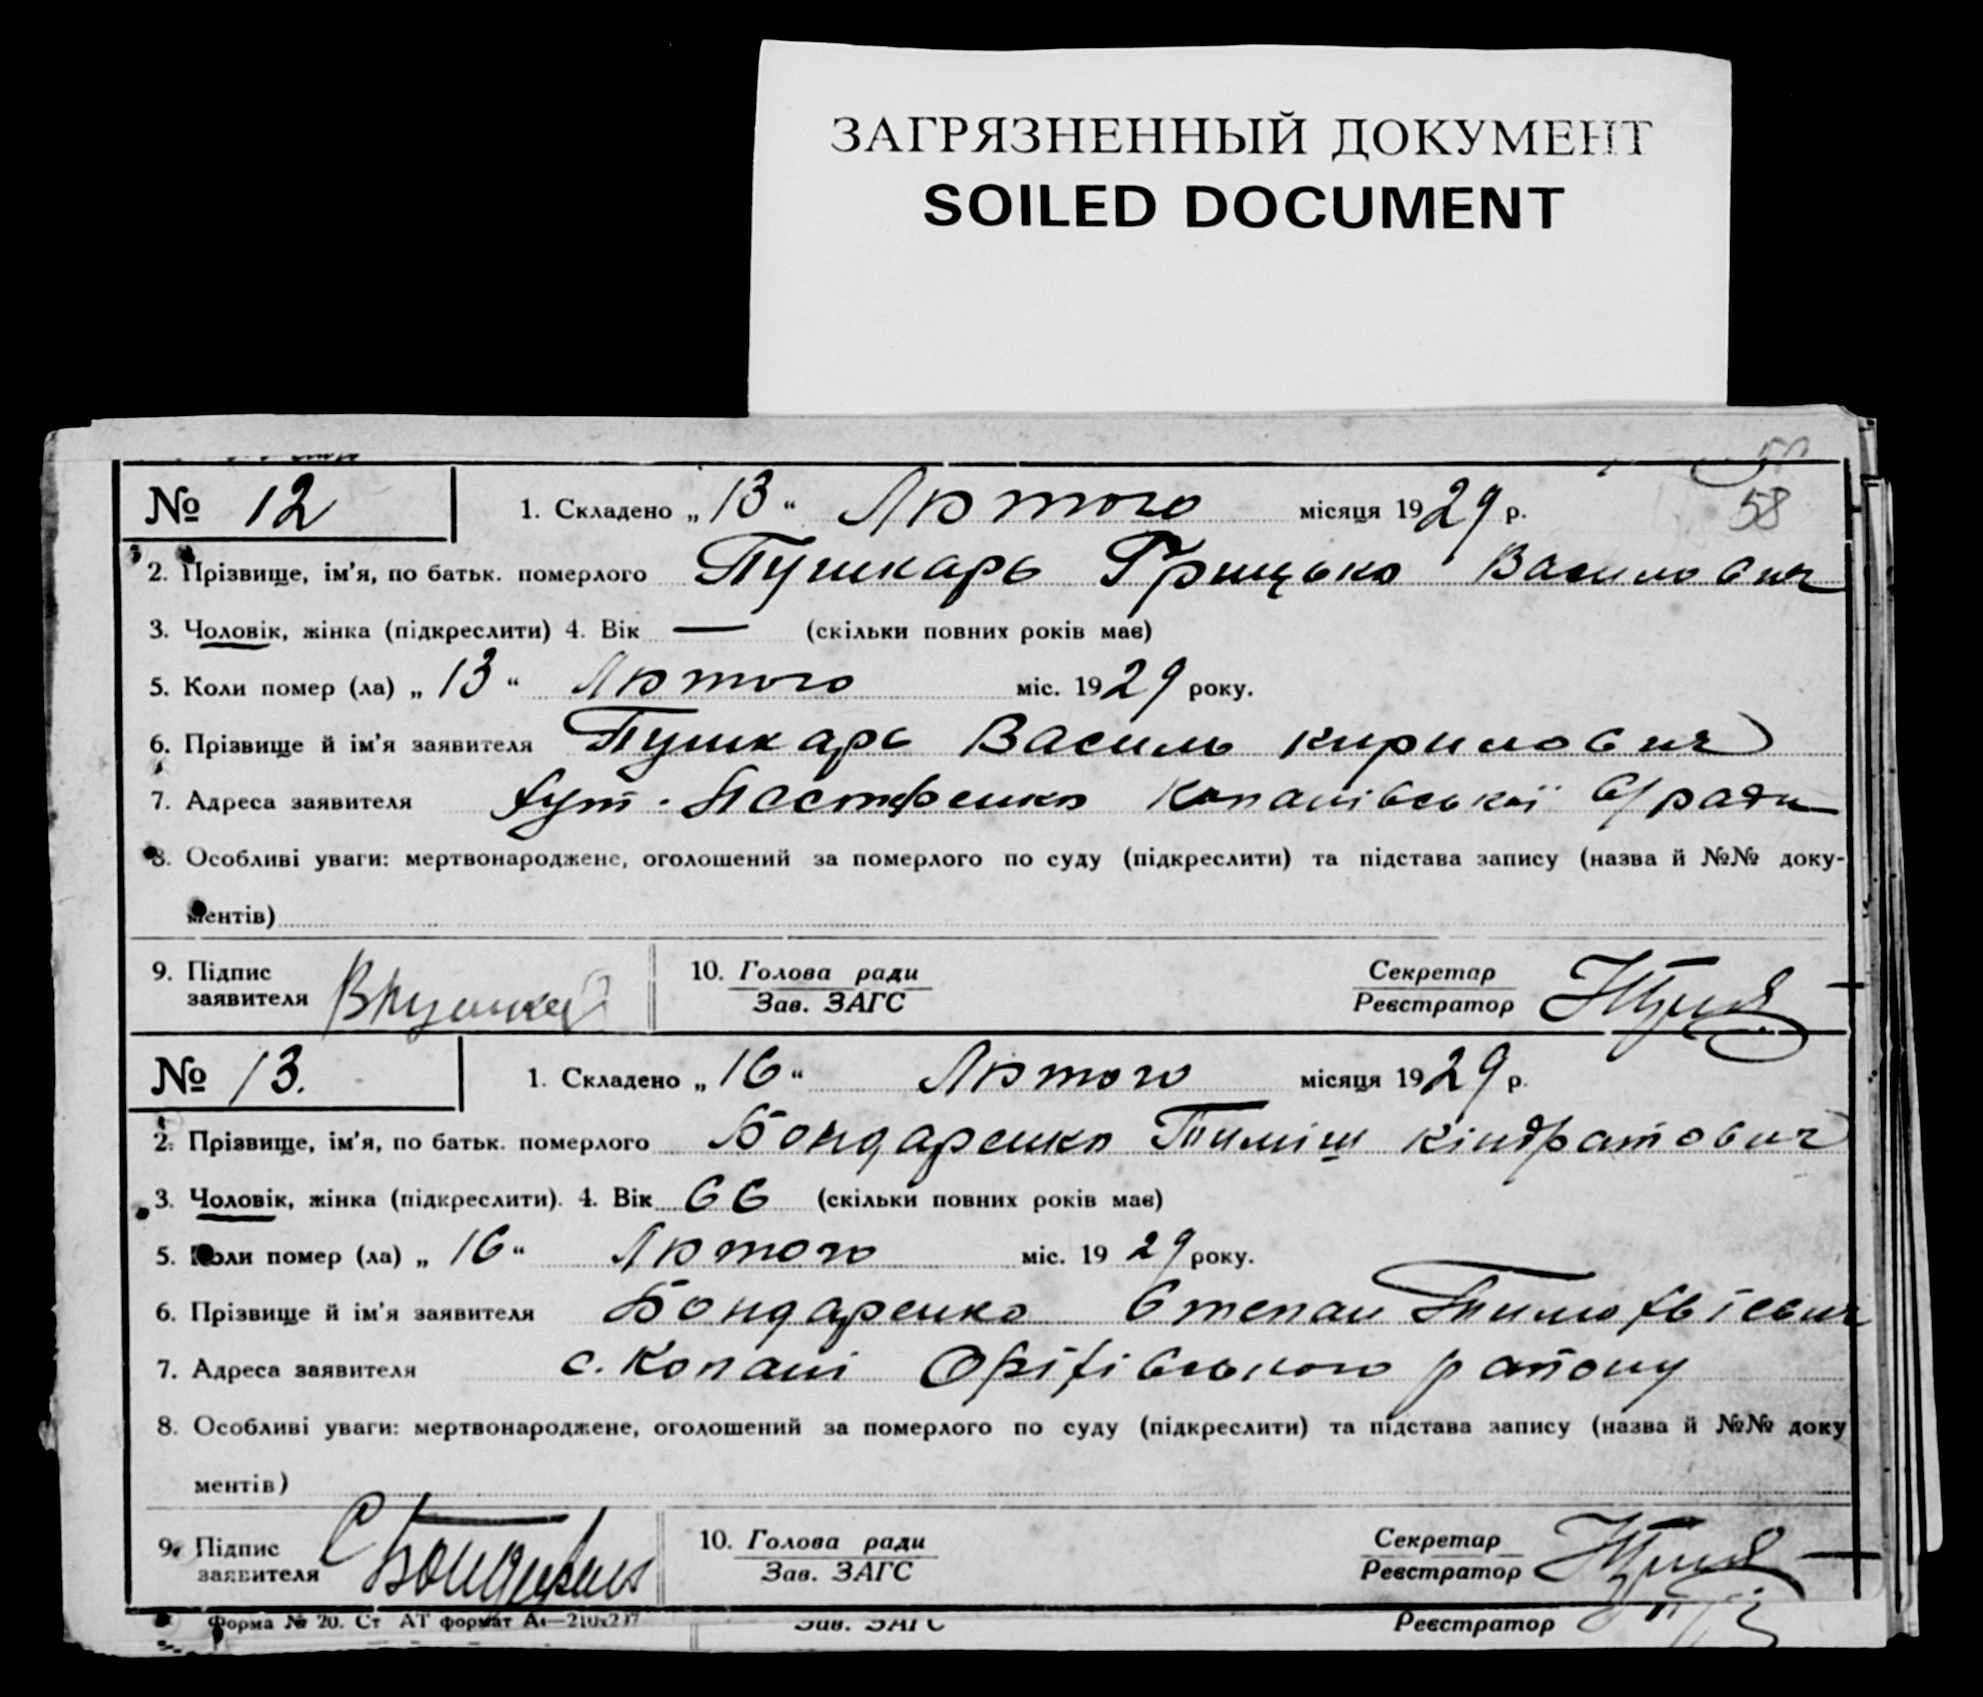 ЗАГРЯЗНЕННЫЙ ДОКУМЕНТ
SOILED DOCUMENT
58
№ 12
1. Складено „ 13 “ Лютого місяця 1929 р.
2. Прізвище, ім'я, по батьк. померлого Пушкарь Грицько Василович
3. Чоловік, жінка (підкреслити) 4. Вік — (скільки повних років має)
5. Коли помер (ла) „ 13 “ Лютого міс. 1929 року.
6. Прізвище й ім'я заявителя Пушкарь Василь Кирилович
7. Адреса заявителя хут. Копанівської С/ради
8. Особливі уваги: мертвонароджене, оголошений за померлого по суду (підкреслити) та підстава запису (назва й №№ доку-
ментів)
9. Підпис
заявителя
10. Голова ради
Зав. ЗАГС
Секретар
Реєстратор
№ 13.
1. Складено „ 16 “ Лютого місяця 1929 р.
2. Прізвище, ім'я, по батьк. померлого Бондаренко Тиміш Кіндратович
3. Чоловік, жінка (підкреслити). 4. Вік 66 (скільки повних років має)
5. Коли помер (ла) „ 16 “ Лютого міс. 1929 року.
6. Прізвище й ім'я заявителя Бондаренко Степан Тимофвієвич
7. Адреса заявителя с. Копані Оріхівського району
8. Особливі уваги: мертвонароджене, оголошений за померлого по суду (підкреслити) та підстава запису (назва й №№ доку
ментів)
9. Підпис
заявителя
10. Голова ради
Зав. ЗАГС
Секретар
Реєстратор
Форма № 20. Ст АТ формат А4—210х297
Зав. ЗАГС
Реєстратор